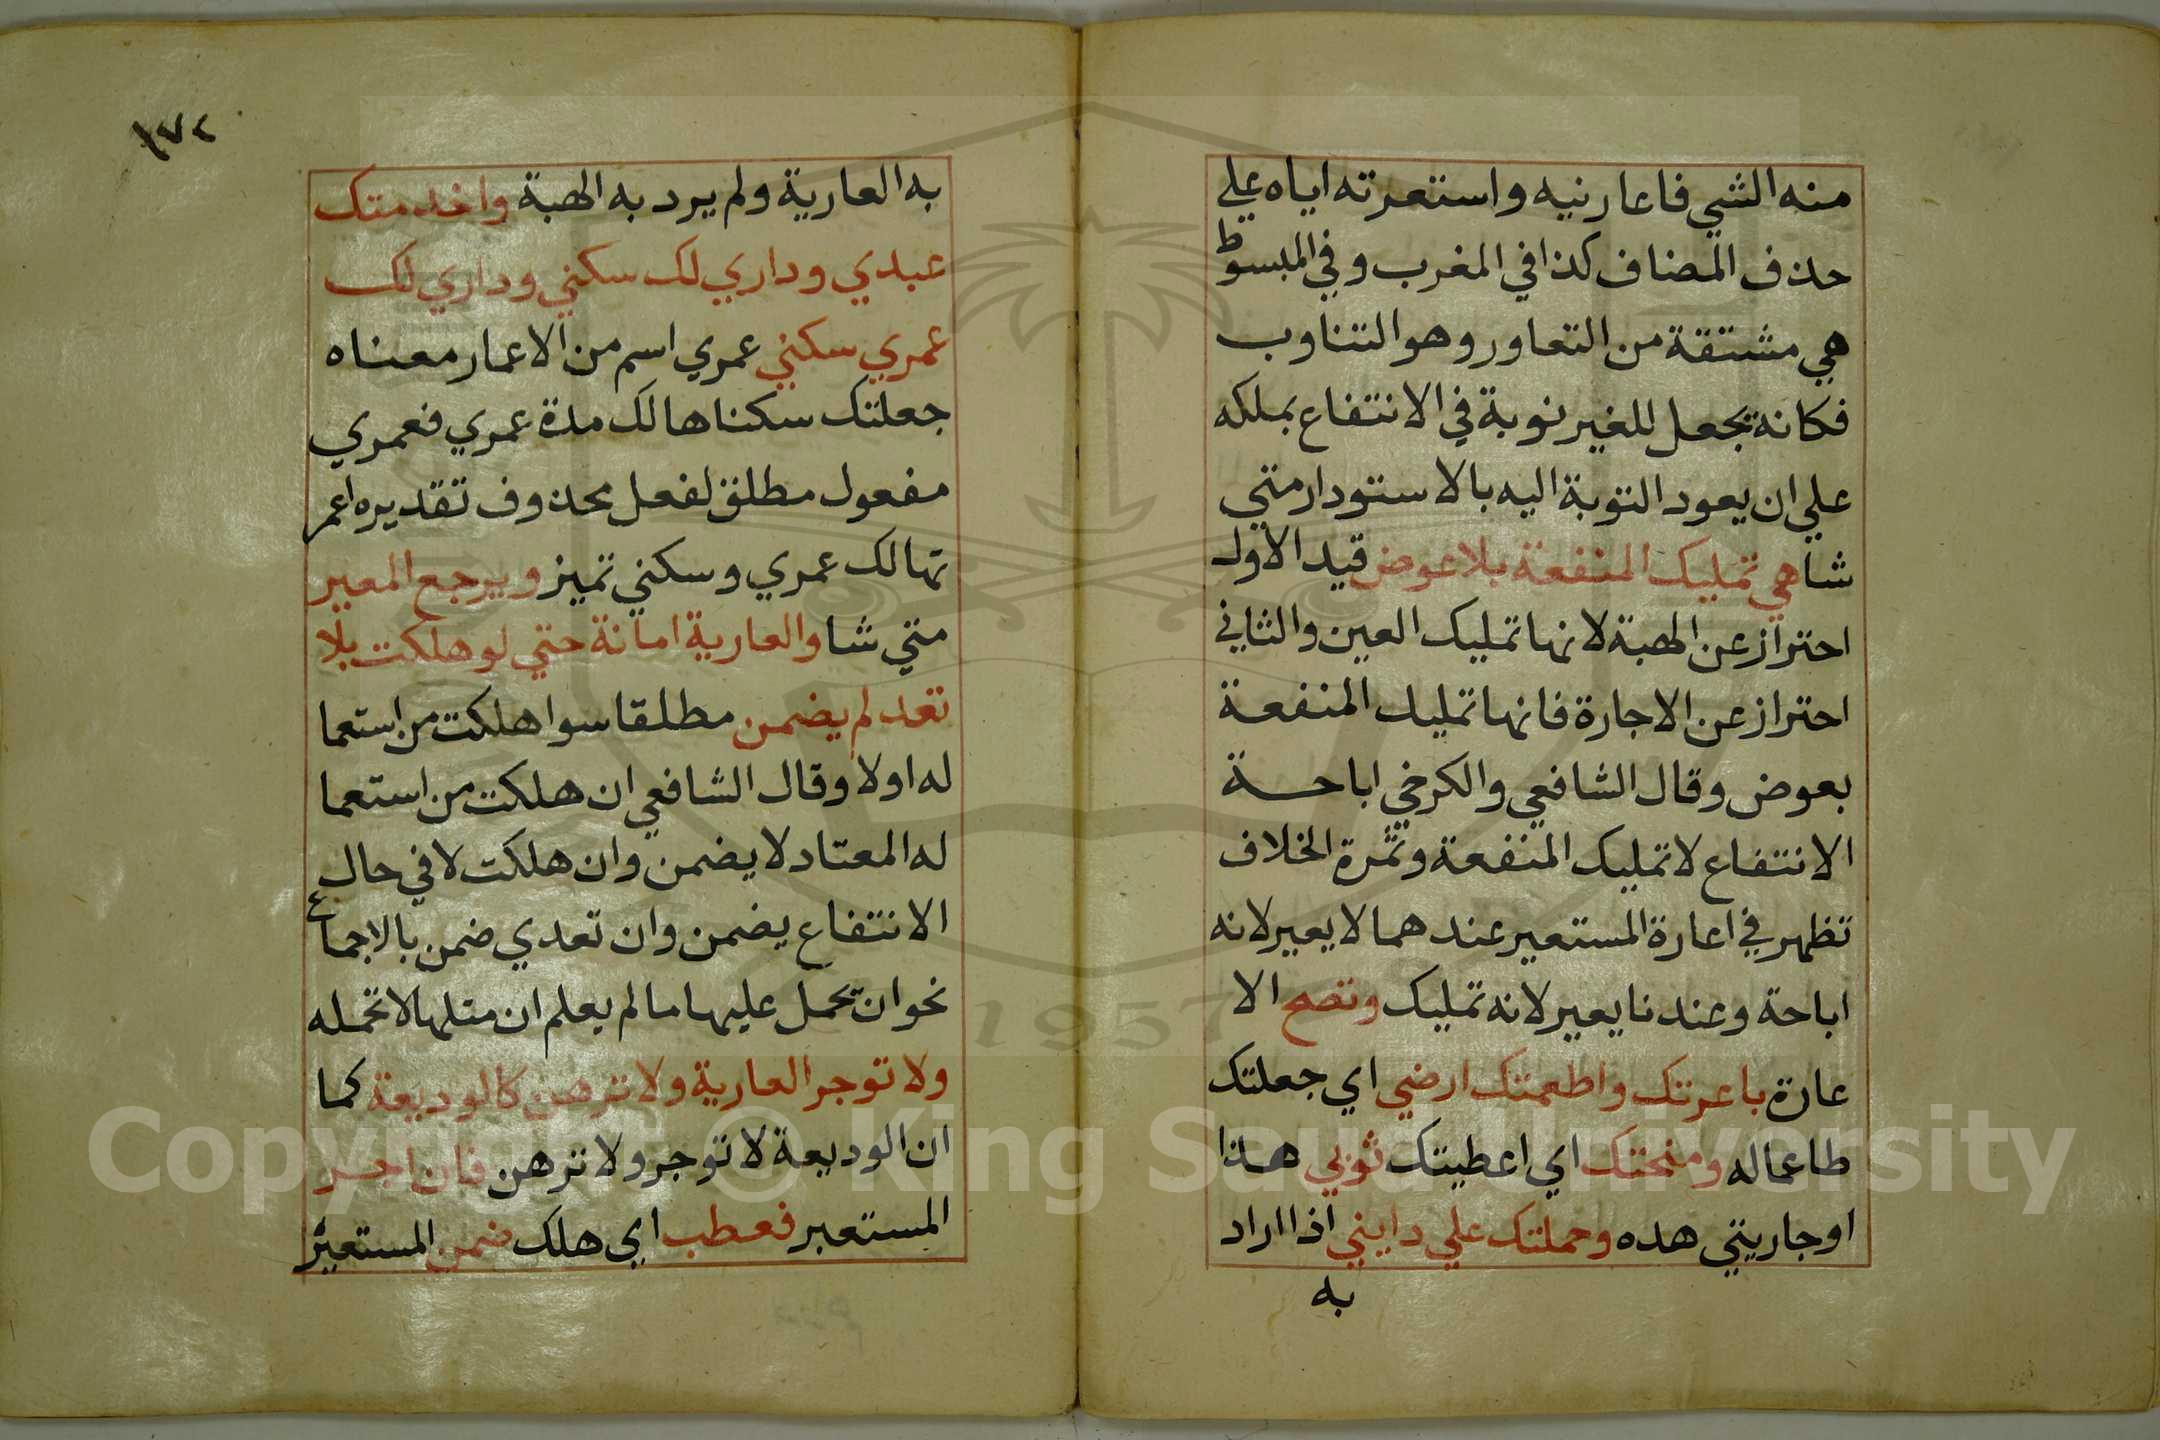 منه الشي فاعارنيه واستعرته اياه علي
حذف المضاف كذا في المغرب وفي المبسوط
هي مشتقة من التعاور وهو التناوب
فكانه تجعل للغير نوبة في الانتفاع بملكه
علي ان يعود النوبة اليه بالاستودار متي
شا هي تمليك المنفعة بلا عوض قيد الاول
احتراز عن الهبة لانها تمليك العين والثاني
احتراز عن الاجارة فانها تمليك المنفعة
بعوض وقال الشافعي والكرخي اباحة
الانتفاع لا تمليك المنفعة وثمرة الخلاف
تظهر في اعارة المستعير عندهما لا يعير لانه
اباحة وعندنا يعير لانه تمليك وتصح الا
عارة باعرتك واطعمتك ارضي اي جعلتك
طاعما له ومنحتك اي اعطيتك ثوبي هذا
او جاريتي هده وحملتك علي دابتي اذا اراد
به
١٧٢
به العارية ولم يرد به الهبة واخدمتك
عبدي وداري لك سكني وداري لك
عمري سكني عمري اسم من الاعمار معناه
جعلتك سكناها لك مدة عمري فعمري
مفعول مطلق لفعل محذوف تقديره اعمر
تها لك عمري وسكني تميز ويرجع المعير
متي شا والعارية امانة حتي لو هلكت بلا
تعد لم يضمن مطلقا سوا هلكت من استعما
له اولا وقال الشافعي ان هلكت من استعما
له المعتاد لا يضمن وان هلكت لا في حال
الانتفاع يضمن وان تعدي ضمن بالاجماع
نحو ان تحمل عليها ما لم يعلم ان مثلها لا تحمله
ولا توجر العارية ولا ترهن كالوديعة كما
ان الوديعة لا توجر ولا ترهن فان اجر
المستعير فعطب اي هلك ضمن المستعير
1957
Copyright © King Saud University